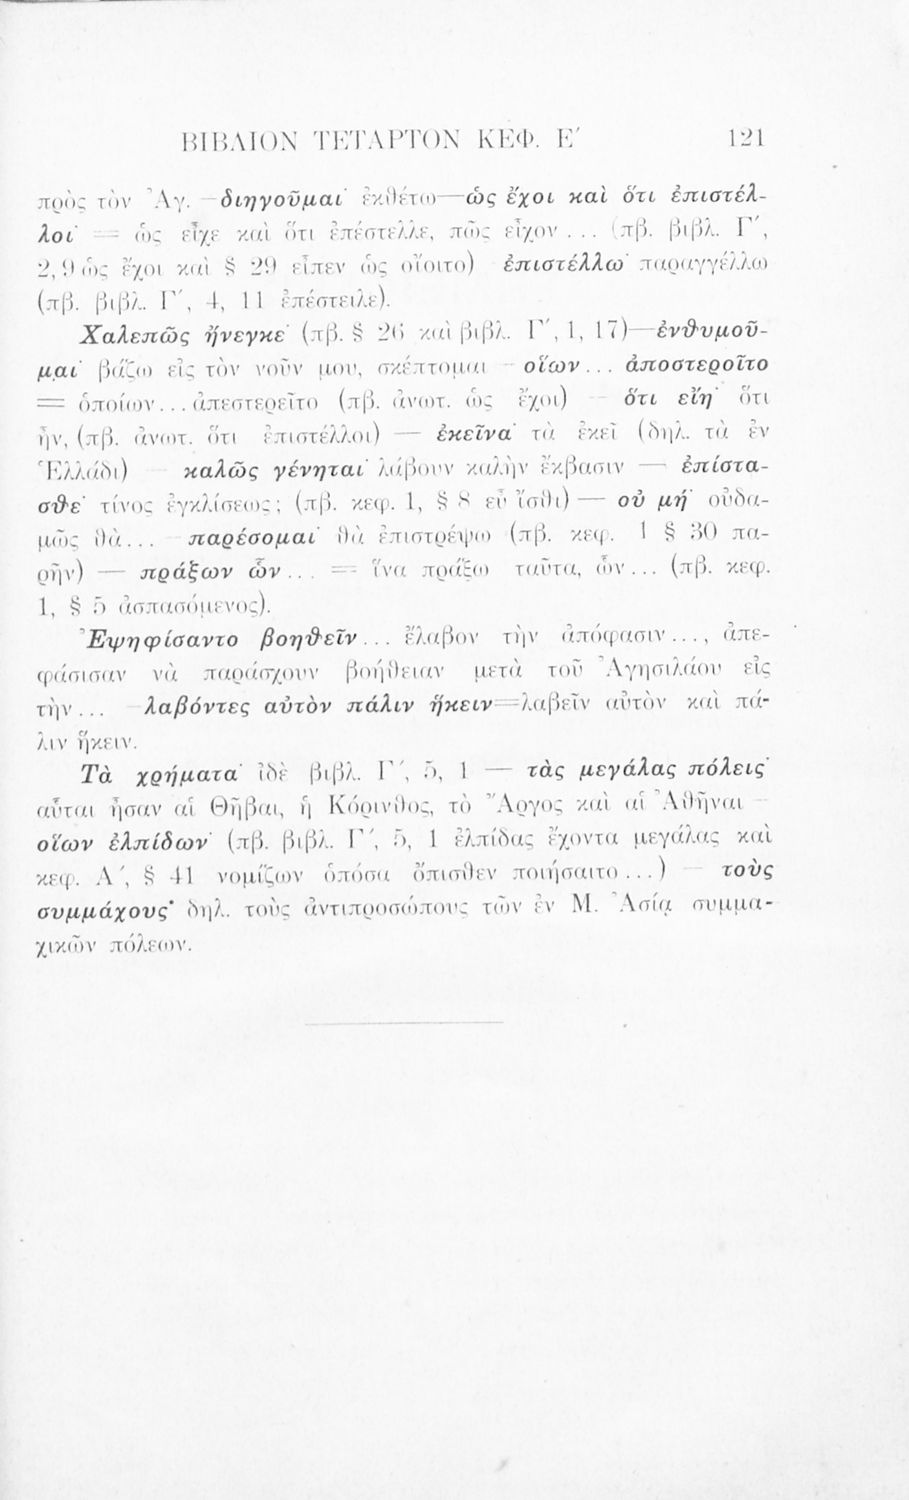 ΒΙΒΛΙΟΝ ΤΕΤΑΡΤΟΝ ΚΕΦ. Ε´ 121
πρὸς τὸν Ἀγ. —διηγοῦμαι· ἐκθέτω—ὡς ἔχοι καὶ ὅτι ἐπιστέλ-
λοι· = ὡς εἶχε καὶ ὅτι ἐπέστελλε, πῶς εἶχον ... (πβ. βιβλ. Γ´,
2, 9 ὡς ἔχοι καὶ § 29 εἶπεν ὡς οἴοιτο) ἐπιστέλλω· παραγγέλλω
(πβ. βιβλ. Γ´, 4, 11 ἐπέστειλε).
Χαλεπῶς ἤνεγκε· (πβ. § 26 καὶ βιβλ. Γ´, 1, 17)—ἐνθυμοῦ-
μαι· βάζω εἰς τὸν νοῦν μου, σκέπτομαι — οἵων... ἀποστεροῖτο
= ὁποίων... ἀπεστερεῖτο (πβ. ἀνωτ. ὡς ἔχοι) — ὅτι εἴη· ὅτι
ἦν, (πβ. ἀνωτ. ὅτι ἐπιστέλλοι) — ἐκεῖνα· τὰ ἐκεῖ (δηλ. τὰ ἐν
Ἑλλάδι) — καλῶς γένηται· λάβουν καλὴν ἔκβασιν — ἐπίστα-
σθε· τίνος ἐγκλίσεως; (πβ. κεφ. 1, § 8 εὖ ἴσθι) — οὐ μή· οὐδα-
μῶς θὰ... — παρέσομαι· θὰ ἐπιστρέψω (πβ. κεφ. 1 § 30 πα-
ρῆν) — πράξων ὧν... = ἵνα πράξω ταῦτα, ὧν... (πβ. κεφ.
1, § 5 ἀσπασόμενος).
Ἐψηφίσαντο βοηθεῖν... ἔλαβον τὴν ἀπόφασιν..., ἀπε-
φάσισαν νὰ παράσχουν βοήθειαν μετὰ τοῦ Ἀγησιλάου εἰς
τὴν... — λαβόντες αὐτὸν πάλιν ἥκειν=λαβεῖν αὐτὸν καὶ πά-
λιν ἥκειν.
Τὰ χρήματα· ἰδὲ βιβλ. Γ´, 5, 1 — τὰς μεγάλας πόλεις·
αὗται ἦσαν αἱ Θῆβαι, ἡ Κόρινθος, τὸ Ἄργος καὶ αἱ Ἀθῆναι —
οἵων ἐλπίδων· (πβ. βιβλ. Γ´, 5, 1 ἐλπίδας ἔχοντα μεγάλας καὶ
κεφ. Α´, § 41 νομίζων ὁπόσα ὄπισθεν ποιήσαιτο...) — τοὺς
συμμάχους· δηλ. τοὺς ἀντιπροσώπους τῶν ἐν Μ. Ἀσίᾳ συμμα-
χικῶν πόλεων.